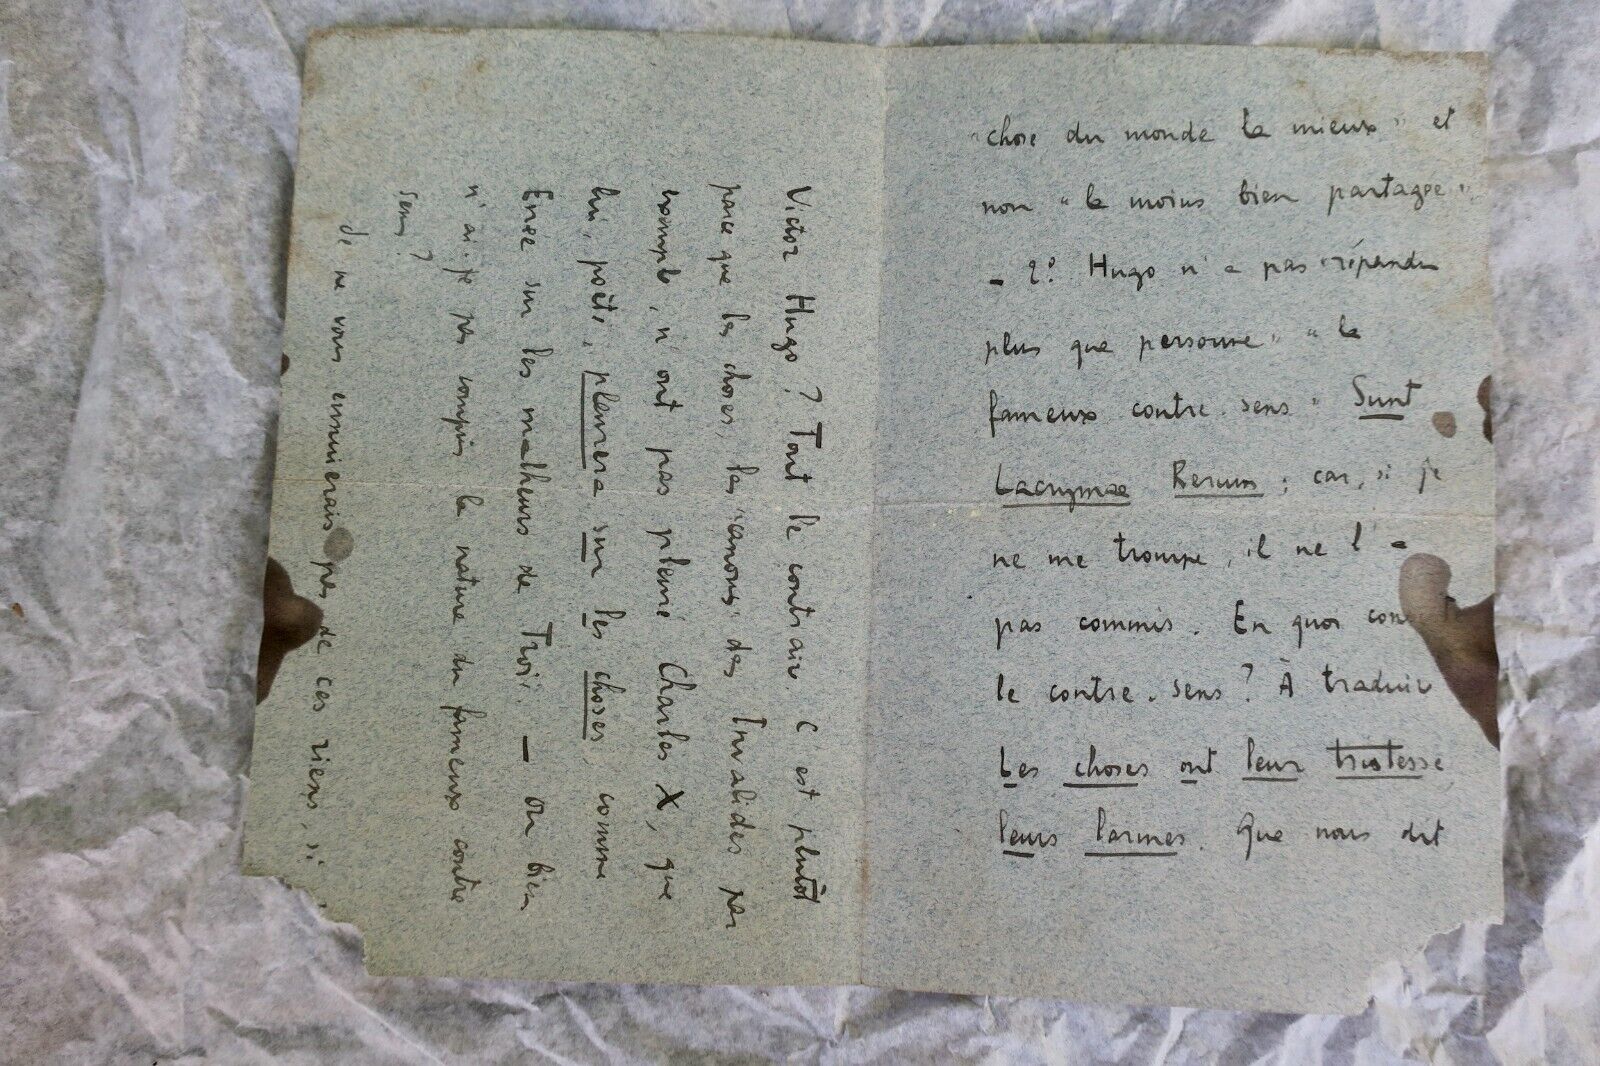 "chose du monde la mieux" et
non "la moins bien partagée"
— 2° Hugo n'a pas "répandu
plus que personne" "le
fameux contre-sens" Sunt
Lacrymae Rerum ; car, si je
ne me trompe, il ne l'a
pas commis. En quoi
le contre-sens ? À traduire
Les choses ont leur tristesse,
leurs larmes. Que nous dit
Victor Hugo ? Tout le contraire. C'est plutôt
parce que les choses, les "canons" des Invalides par
exemple, n'ont pas pleuré Charles X, que
lui, poète, pleurera sur les choses, comme
Enée sur les malheurs de Troie. — Ou bien
n'ai-je pas compris la nature du fameux contre
sens ?
Je ne vous ennuierais pas de ces riens, si